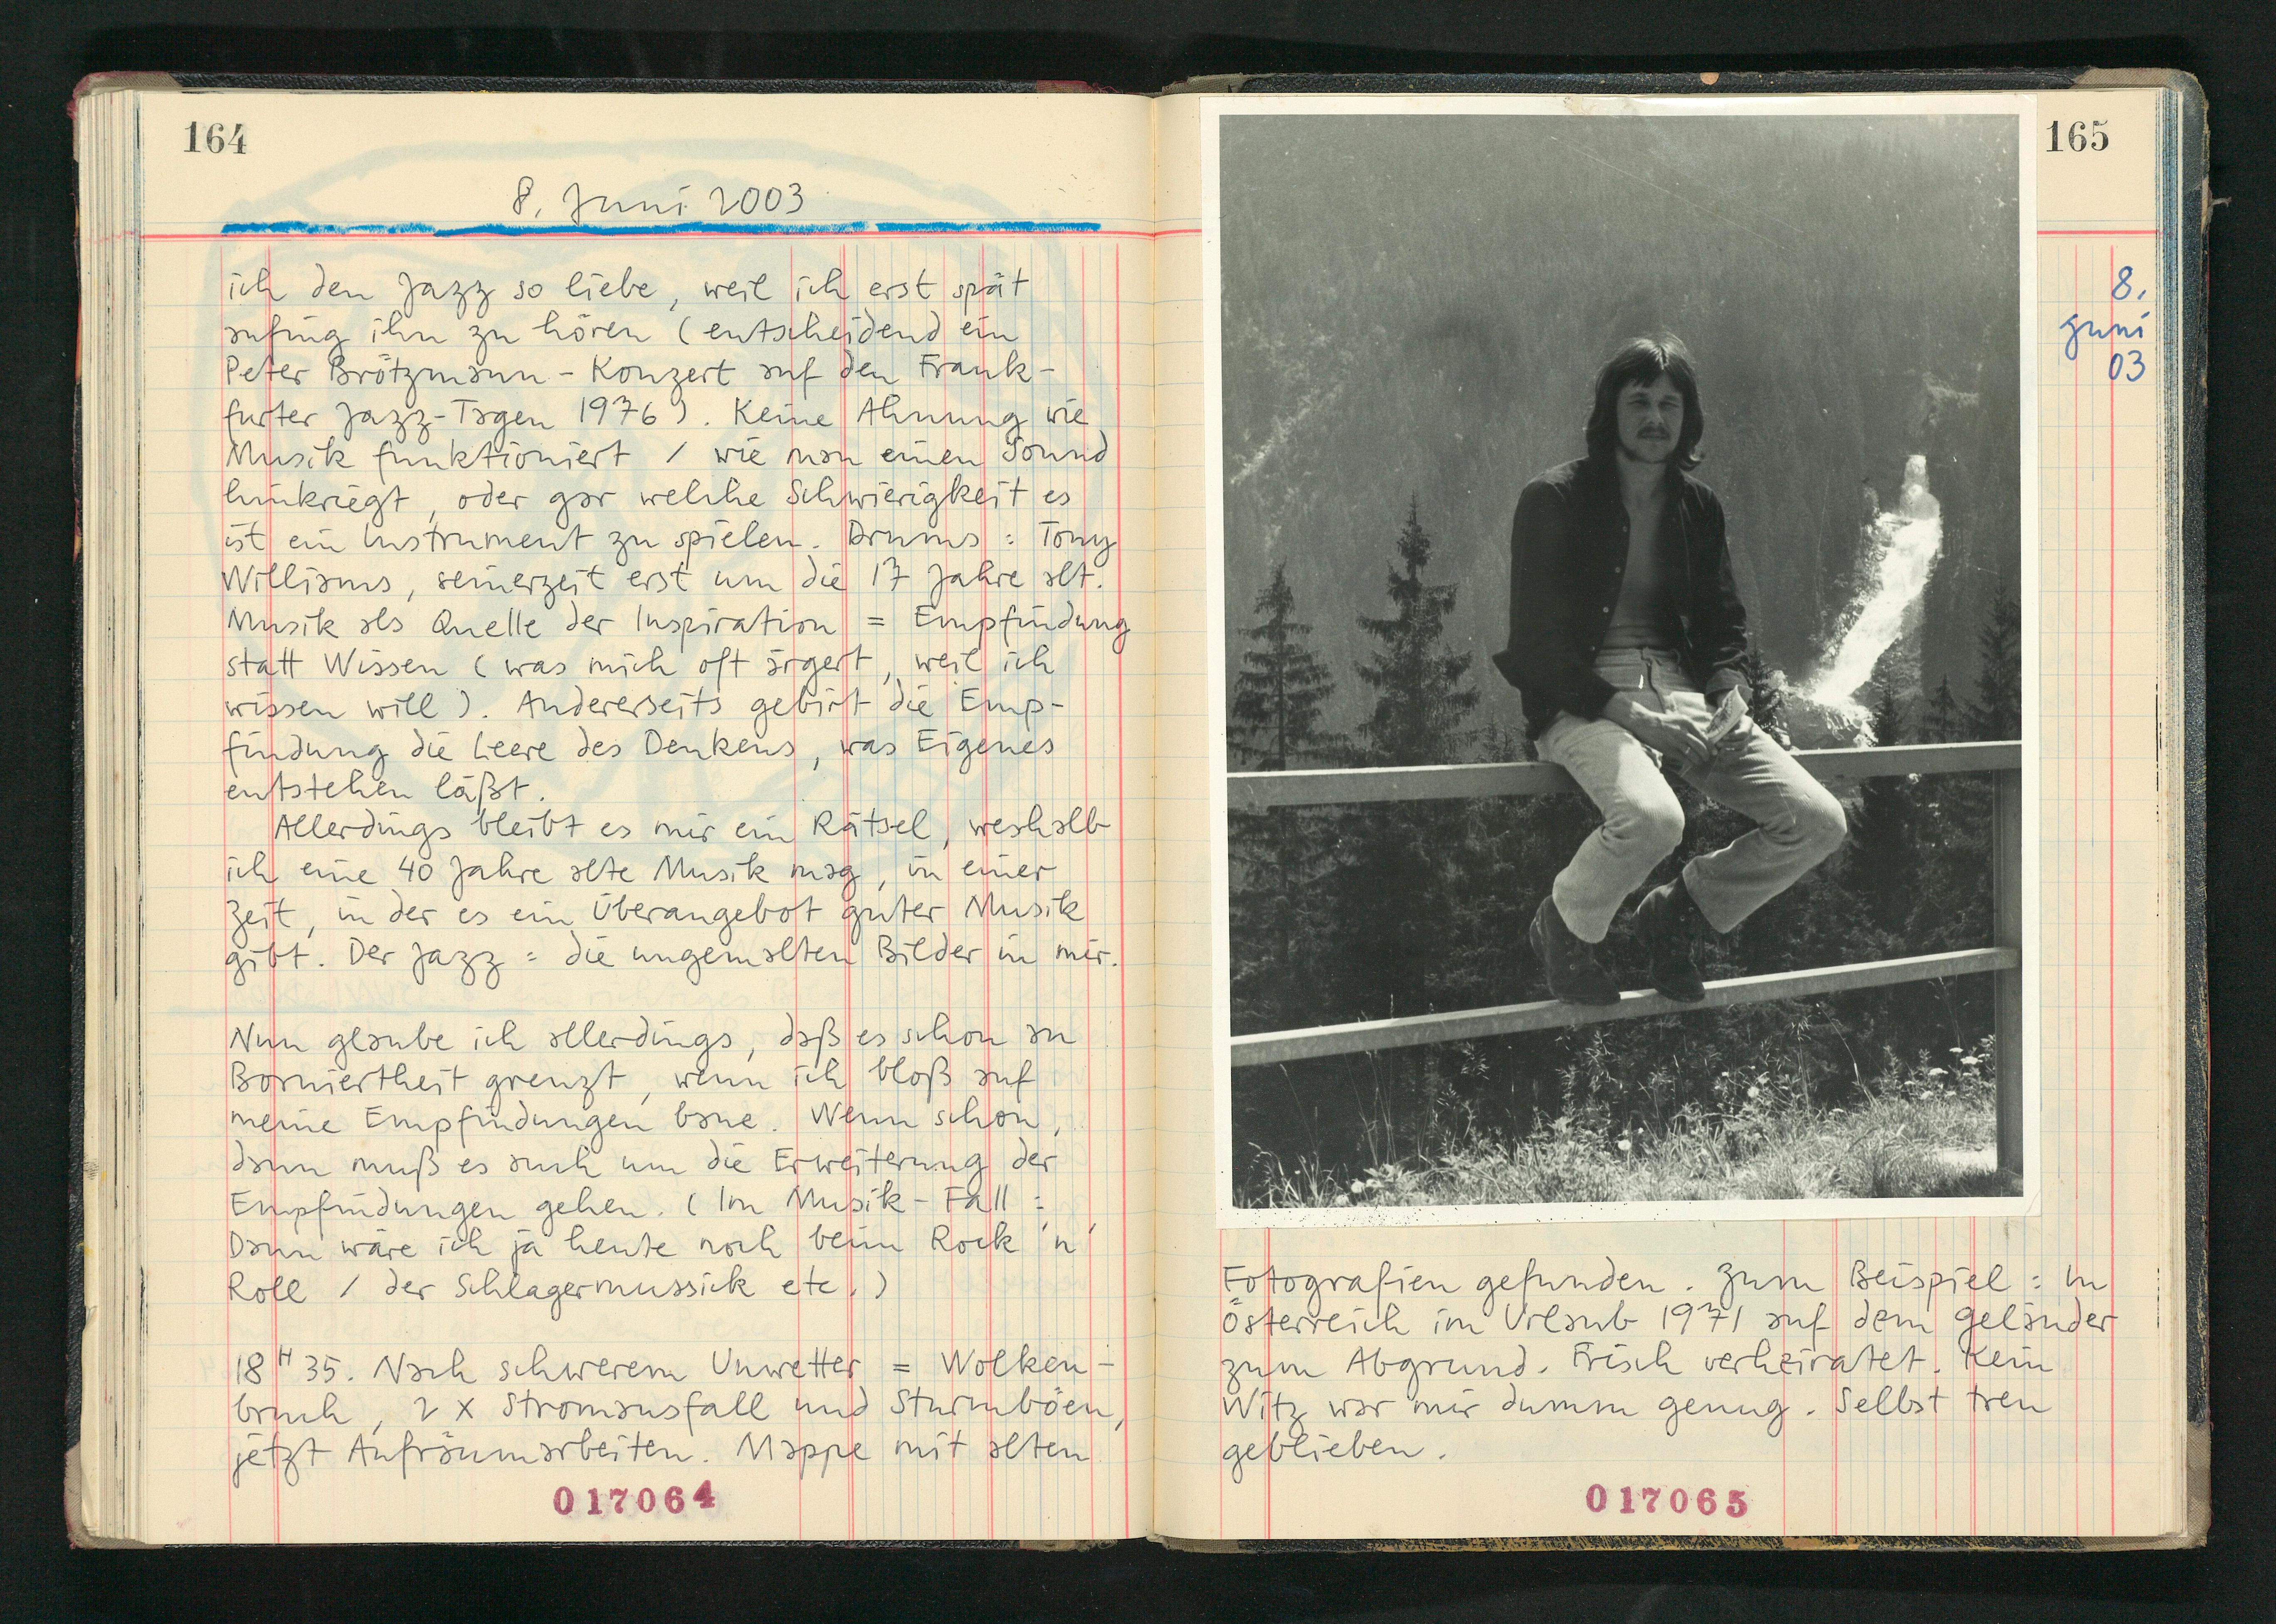 164
8. Juni 2003
ich den Jazz so liebe, weil ich erst spät
anfing ihn zu hören (entscheidend ein
Peter Brötzmann-Konzert auf den Frank-
furter Jazz-Tagen 1976). Keine Ahnung wie
Musik funktioniert / wie man einen Sound
hinkriegt, oder gar welche Schwierigkeit es
ist ein Instrument zu spielen. Drums: Tony
Williams, seinerzeit erst um die 17 Jahre alt.
Musik als Quelle der Inspiration = Empfindung
statt Wissen (was mich oft ärgert, weil ich
wissen will). Andererseits gebirt die Emp-
findung die Leere des Denkens, was Eigenes
entstehen läßt.
Allerdings bleibt es mir ein Rätsel, weshalb
ich eine 40 Jahre alte Musik mag, in einer
Zeit, in der es ein Überangebot guter Musik
gibt. Der Jazz = die ungemalten Bilder in mir.
Nun glaube ich allerdings, daß es schon an
Borniertheit grenzt, wenn ich bloß auf
meine Empfindungen baue. Wenn schon,
dann muß es auch um die Erweiterung der
Empfindungen gehen. (Im Musik-Fall:
Dann wäre ich ja heute noch beim Rock 'n'
Roll / der Schlagermussick etc.)
18 H 35. Nach schwerem Unwetter = Wolken-
bruch, 2 x Stromausfall und Sturmböen,
jetzt Aufräumarbeiten. Mappe mit alten
017064
165
8.
Juni
03
Fotografien gefunden. Zum Beispiel: In
Österreich im Urlaub 1971 auf dem Geländer
zum Abgrund. Frisch verheiratet. Kein
Witz war mir dumm genug. Selbst treu
geblieben.
017065